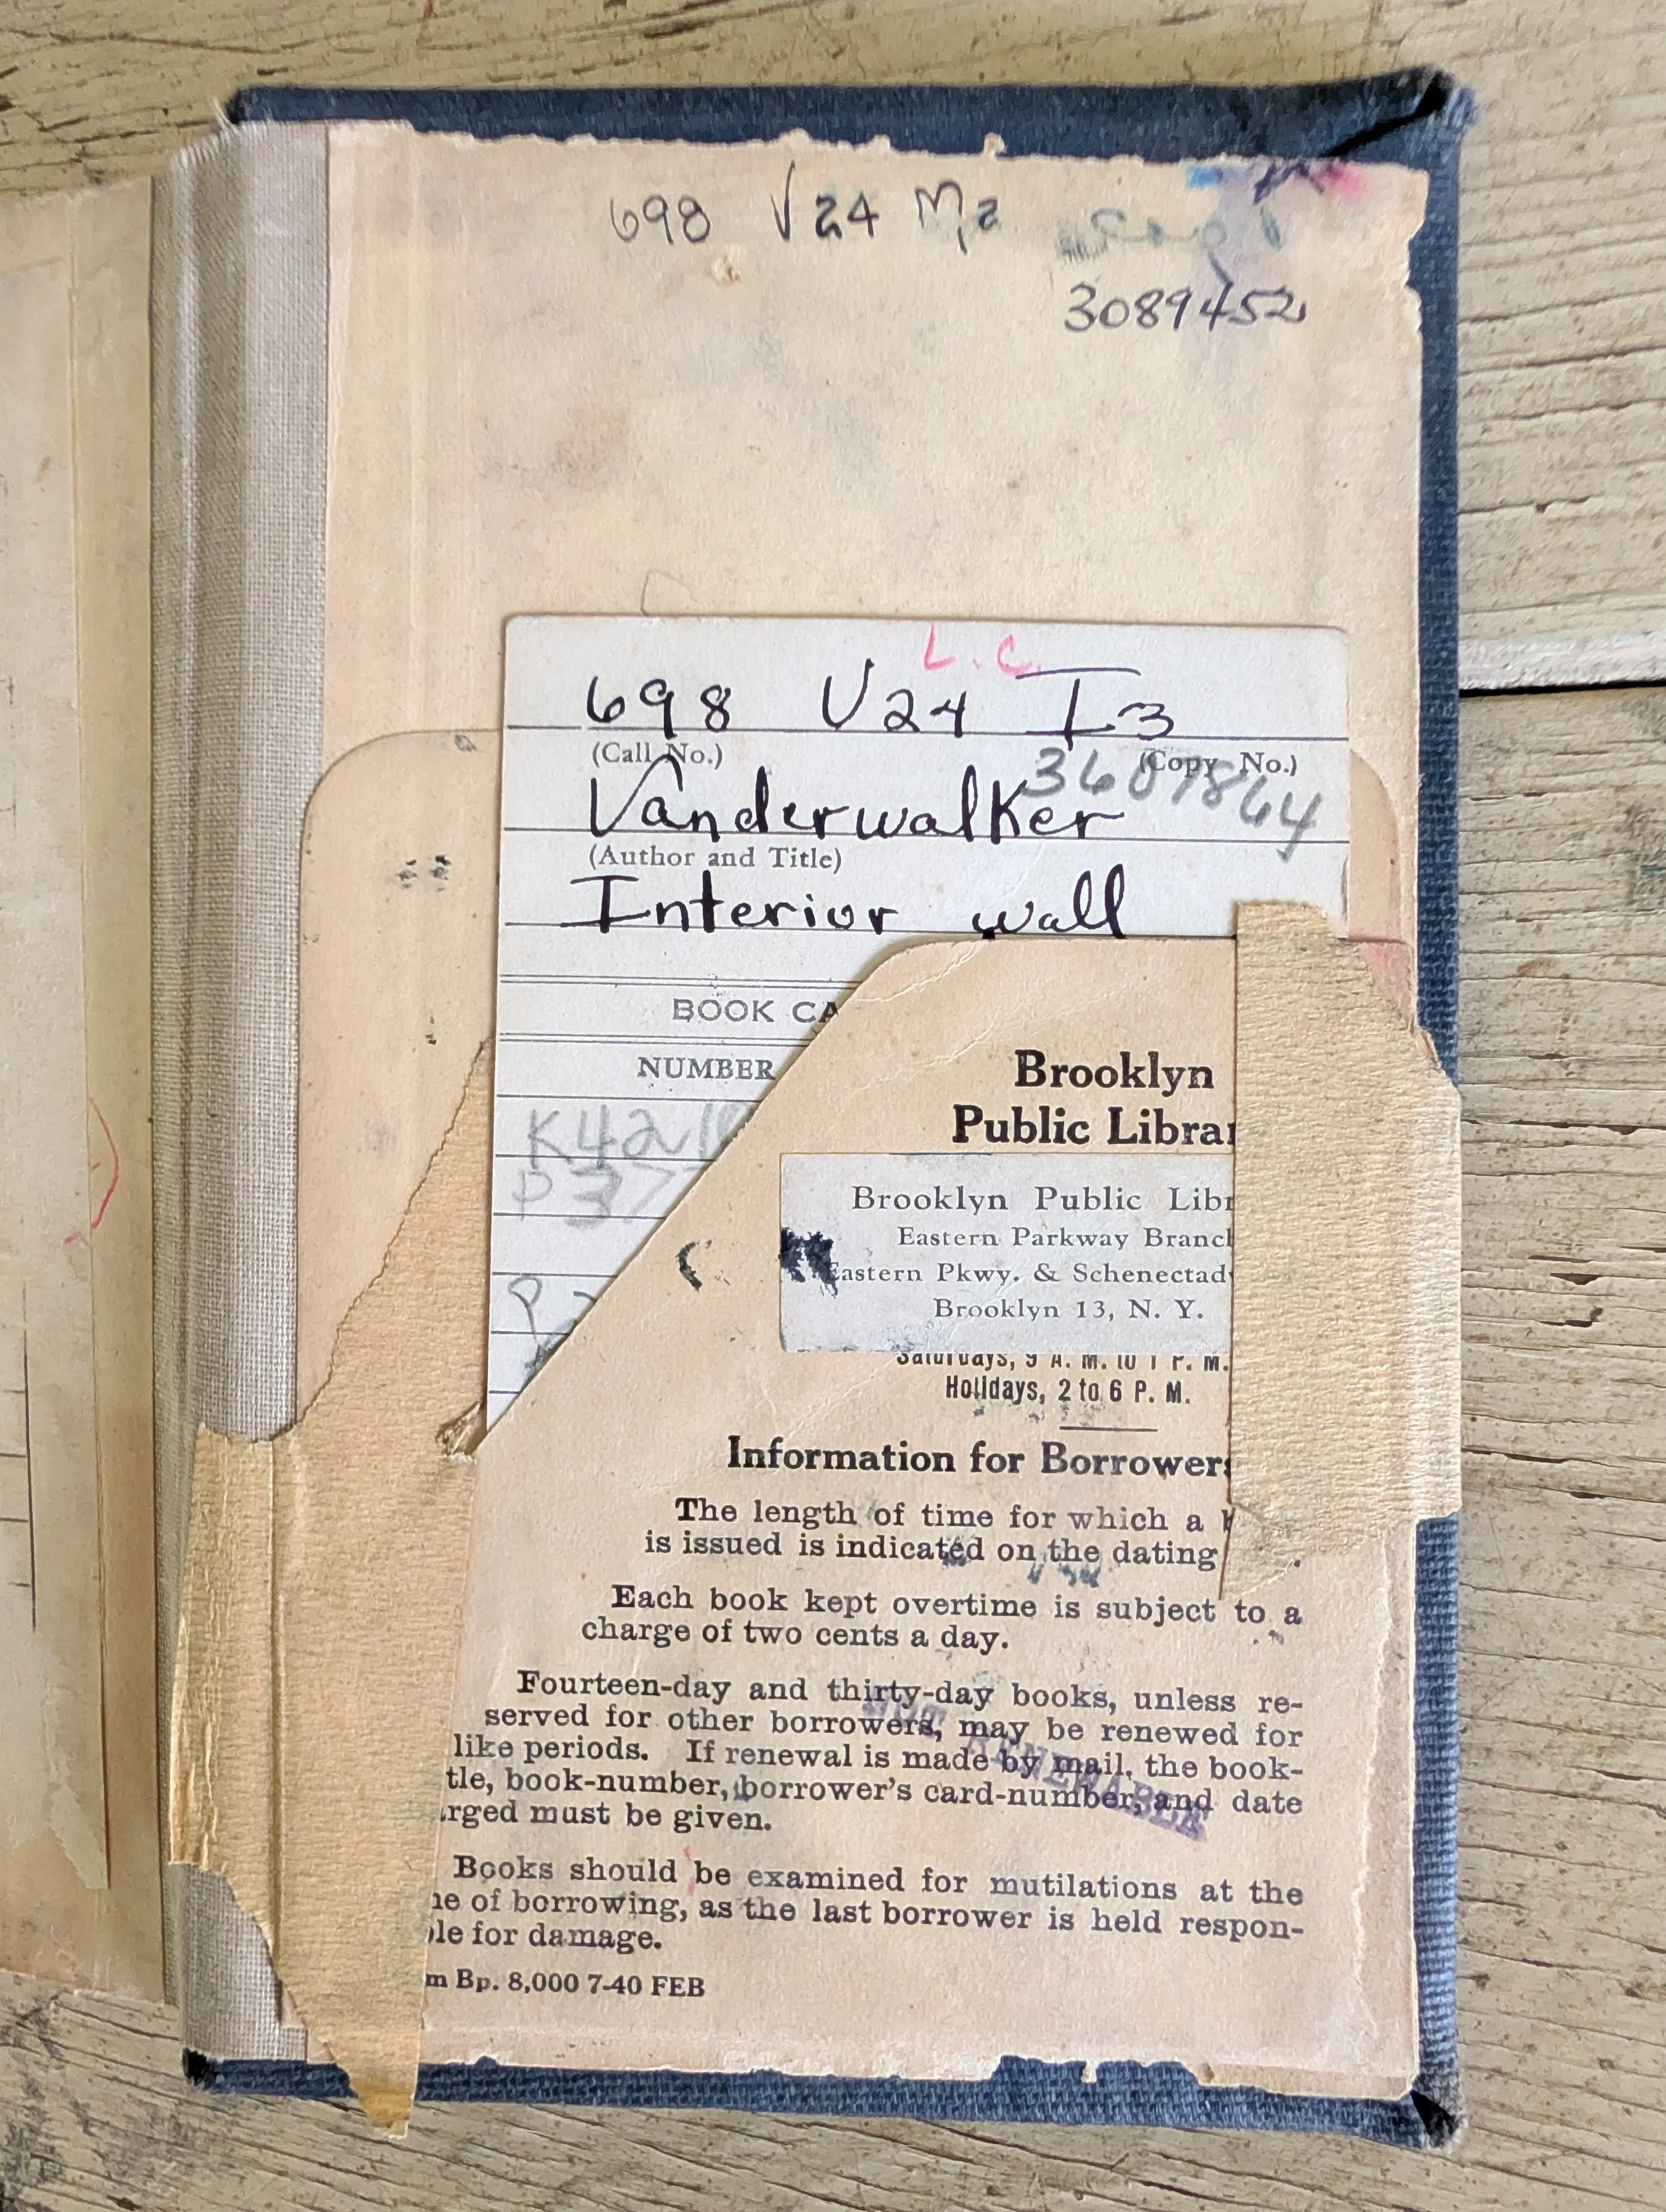 698 V24 M2
3089452
L.C.
698 V24 I3
(Call No.) (Copy No.)
3607864
Vanderwalker
(Author and Title)
Interior wall
BOOK CA
NUMBER
K42
P37
Brooklyn
Public Librar
Brooklyn Public Libr
Eastern Parkway Branch
Eastern Pkwy. & Schenectady
Brooklyn 13, N. Y.
Saturdays, 9 A. M. to 1 P. M.
Holidays, 2 to 6 P. M.
Information for Borrowers
The length of time for which a
is issued is indicated on the dating
Each book kept overtime is subject to a
charge of two cents a day.
Fourteen-day and thirty-day books, unless re-
served for other borrowers, may be renewed for
like periods. If renewal is made by mail, the book-
tle, book-number, borrower's card-number, and date
rged must be given.
NOT RENEWABLE
Books should be examined for mutilations at the
ne of borrowing, as the last borrower is held respon-
le for damage.
m Bp. 8,000 7-40 FEB